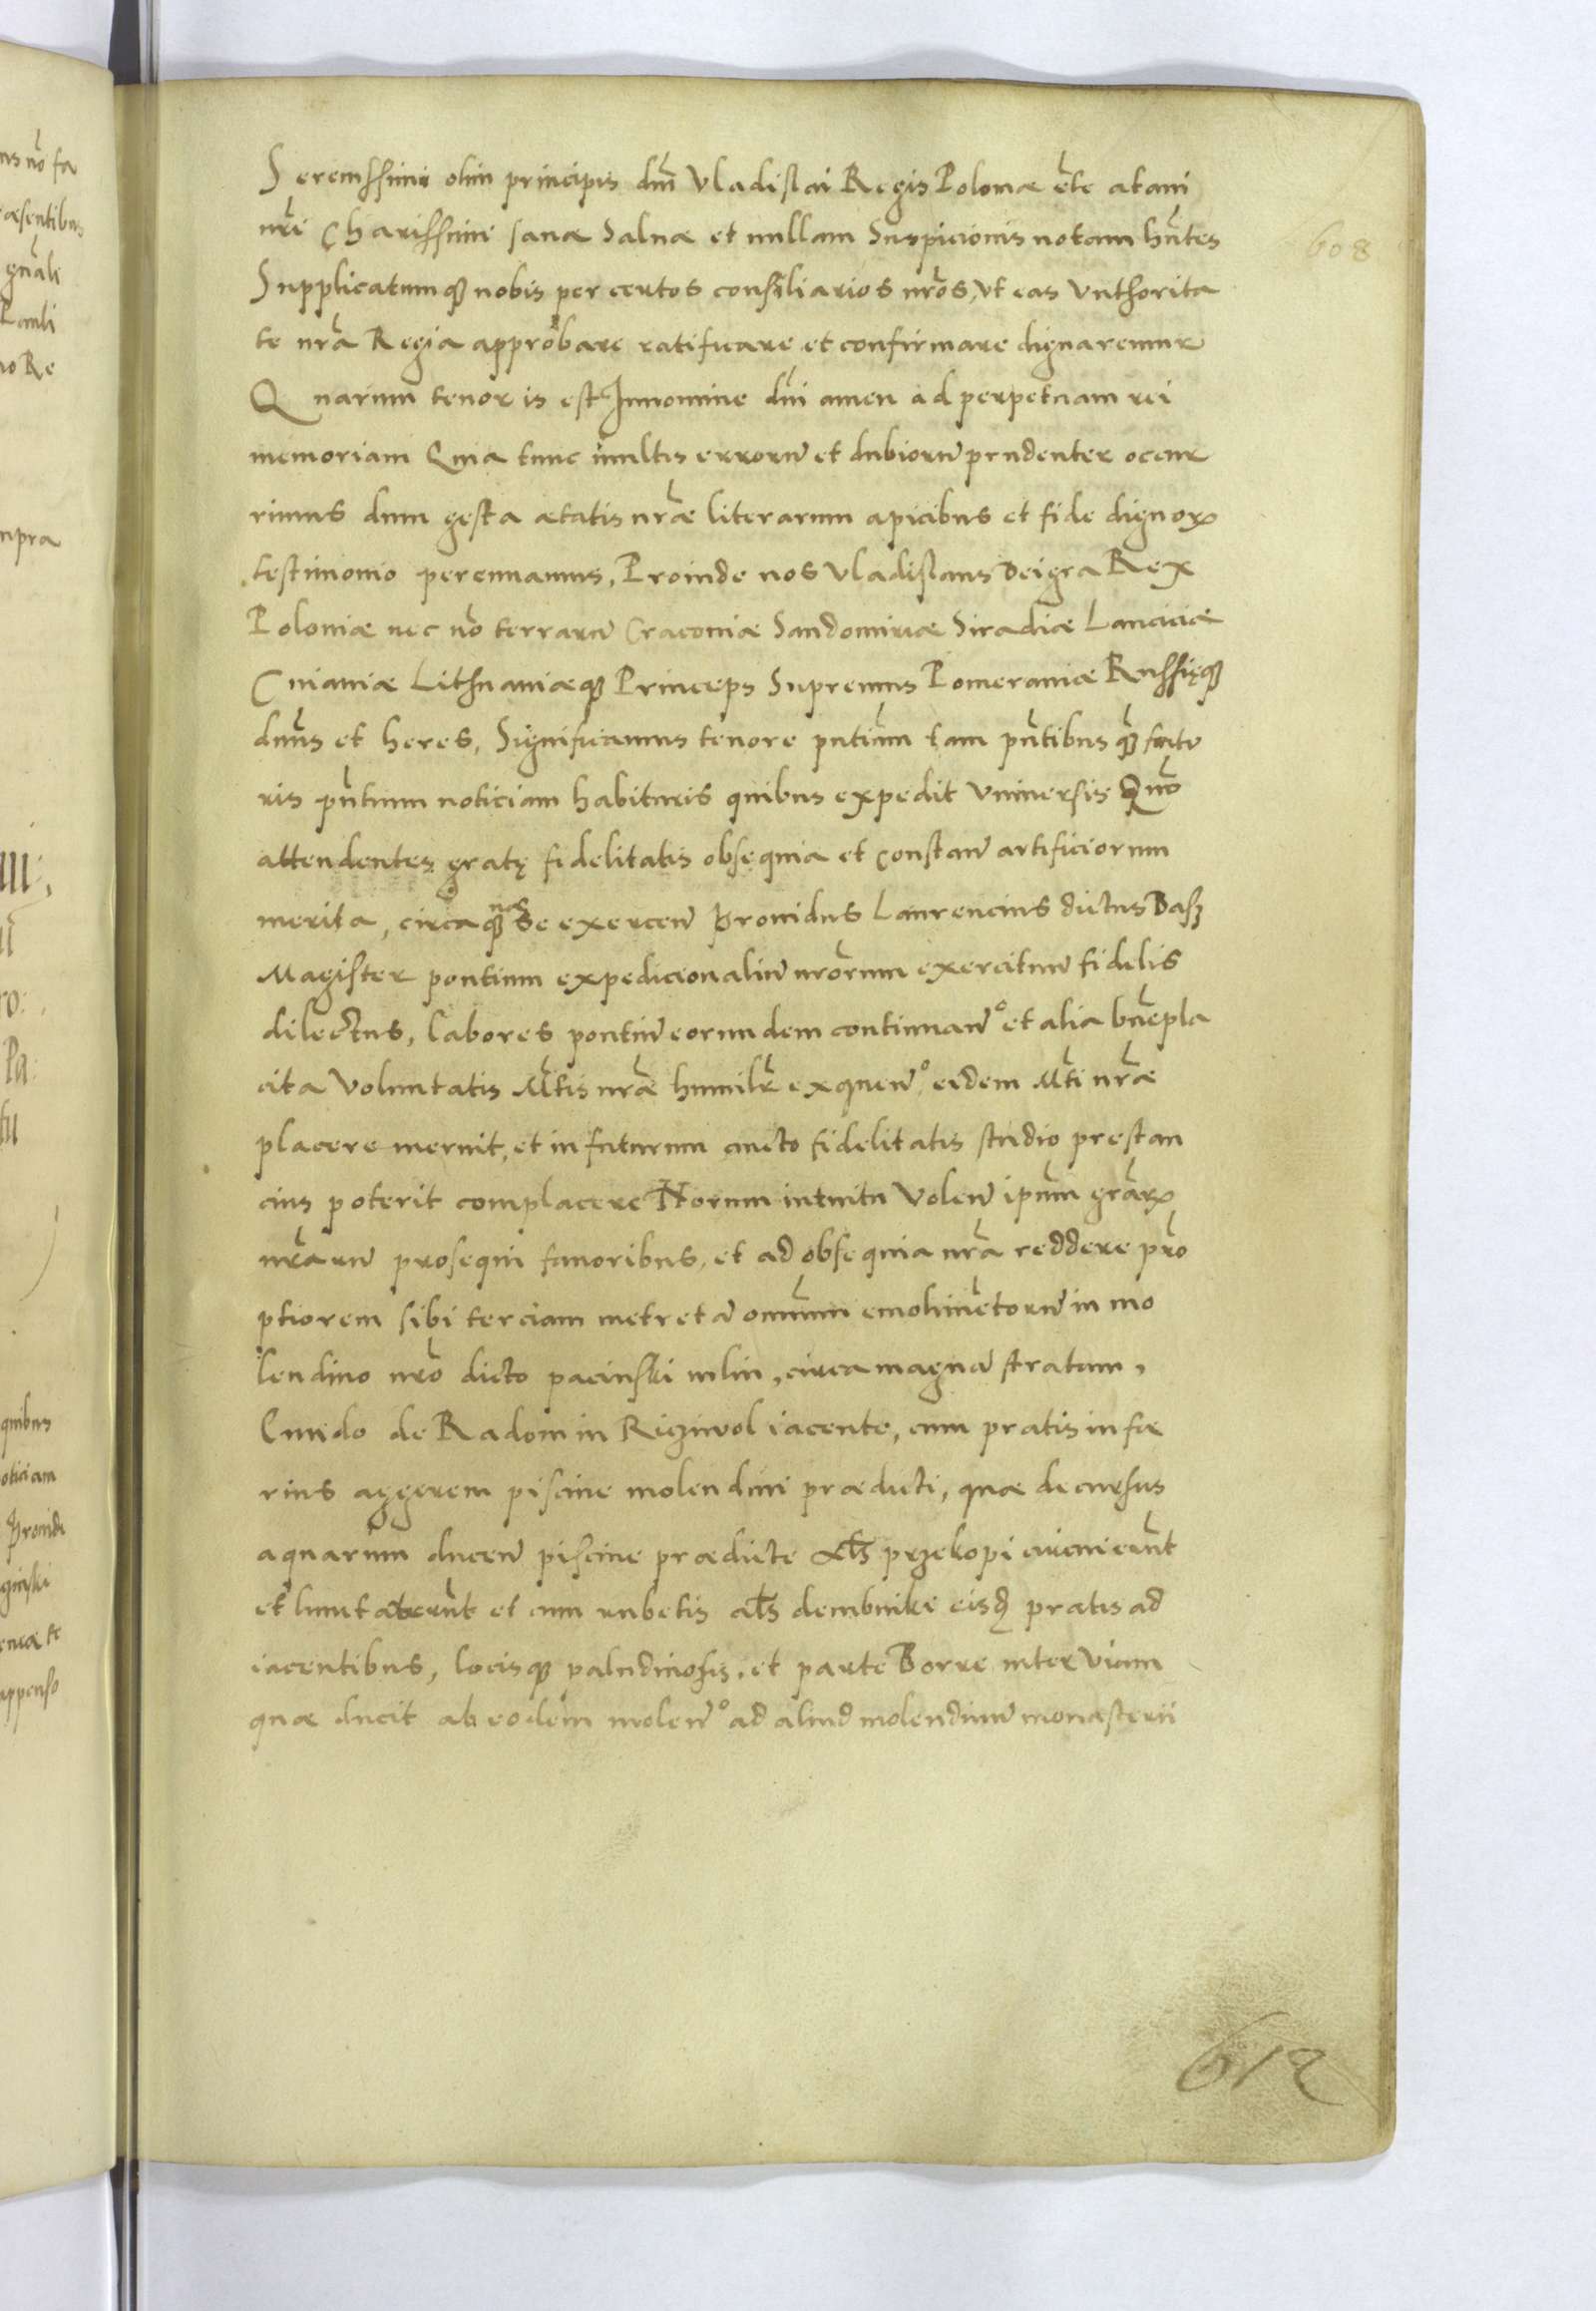 Serenissimi olim principis dnĩ Vladislai Regis Polonæ ẽtc atavi
nr̃i Charissimi sanæ Saluæ et nullam Suspicionis notam hñtes
Supplicatumq nobis per certos consiliarios nr̃os, Vt eas Vuthorita
te nr̃a Regia approbare ratificare et confirmare dignaremur
Quarum tenor is est Innomine dnĩ amen ad perpetuam rei
memoriam Quia tunc multis errorũ et dubiorũ prudenter occur
rimus dum gesta ætatis nr̃æ literarum apicibus et fide dignoꝝ
testimonio perennamus, Proinde nos Vladislaus Dei gra Rex
Poloniæ nec nõ terrarũ Cracouiæ Sandomiriæ Siradiæ Lanciciæ
Cuiauiæ Lithuaniæq Princeps Supremus Pomeraniæ Russięq
dnũs et heres, Significamus tenore pntiũm tam pñtibus q̃ futu
ris pñtium noticiam habituris quibus expedit Vniuersis Quõ
attendentes gratę fidelitatis obsequia et constanũ artificiorum
merita, circaq nos Se exercen̄ Prouidus Laurencius dictus Basz
Magister pontium expedicionaliũ nr̃orum exercituũ fidelis
dilectus, labores pontiũ eorundem continuan̄º et alia bñepla
cita Voluntatis Mtis nr̃æ humilr̃ exquen̄º eidem Mti nr̃æ
placere meruit, et in futurum aucto fidelitatis studio prestan
cius poterit complacere Horum intuitu Volen̄ ipũm gr̃aꝝ
nr̃arũ prosequi fauoribus, et ad obsequia nr̃a reddere prõ
ptiorem sibi terciam metretã omniũm emolimẽtorũ in mo
lendino nr̃o dicto pacinski mlin, circa magnã stratam,
Cundo de Radom in Riczivol iacente, cum pratis infæ
rius aggerem piscine molendini prædicti, quæ decursus
aquarum ducen̄ piscine prædicte als przekopi circuierũnt
et limitauerũnt et cum rubetis als dembnike eisd pratis ad
iacentibus, locisq paludinosis, et parte Borre inter Viam
quæ ducit ab eodem molen̄º ad aliud molendinũ monasterii
608
612